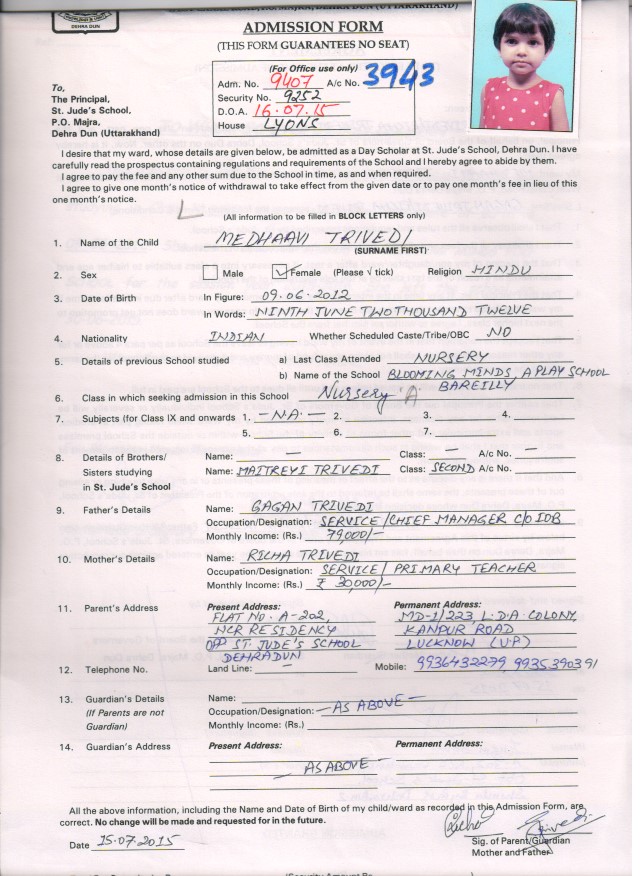 DEHRA DUN
ADMISSION FORM
(THIS FORM GUARANTEES NO SEAT)
(For Office use only)
Adm. No. 9407 A/c No. 3943
Security No. 9252
D.O.A. 16.07.15
House LYONS
To,
The Principal,
St. Jude's School,
P.O. Majra,
Dehra Dun (Uttarakhand)
I desire that my ward, whose details are given below, be admitted as a Day Scholar at St. Jude's School, Dehra Dun. I have
carefully read the prospectus containing regulations and requirements of the School and I hereby agree to abide by them.
I agree to pay the fee and any other sum due to the School in time, as and when required.
I agree to give one month's notice of withdrawal to take effect from the given date or to pay one month's fee in lieu of this
one month's notice.
(All information to be filled in BLOCK LETTERS only)
1. Name of the Child MEDHAAVI TRIVEDI
(SURNAME FIRST)
2. Sex Male Female (Please √ tick) Religion HINDU
3. Date of Birth In Figure: 09.06.2012
In Words: NINTH JUNE TWOTHOUSAND TWELVE
4. Nationality INDIAN Whether Scheduled Caste/Tribe/OBC NO
5. Details of previous School studied a) Last Class Attended NURSERY
b) Name of the School BLOOMING MINDS, A PLAY SCHOOL
BAREILLY
6. Class in which seeking admission in this School Nursery 'A'
7. Subjects (for Class IX and onwards 1. -NA- 2. 3. 4.
5. 6. 7.
8. Details of Brothers/ Name: — Class: — A/c No. —
Sisters studying Name: MAITREYI TRIVEDI Class: SECOND A/c No.
in St. Jude's School
9. Father's Details Name: GAGAN TRIVEDI
Occupation/Designation: SERVICE/CHIEF MANAGER C/O IOB
Monthly Income: (Rs.) 79,000/-
10. Mother's Details Name: RICHA TRIVEDI
Occupation/Designation: SERVICE/ PRIMARY TEACHER
Monthly Income: (Rs.) ₹ 30,000/-
11. Parent's Address Present Address: Permanent Address:
FLAT NO. A-202, MD-1/223, L.D.A COLONY,
NCR RESIDENCY KANPUR ROAD
OPP ST. JUDE'S SCHOOL LUCKNOW (U.P)
DEHRADUN
12. Telephone No. Land Line: — Mobile: 9936432279, 9935390391
13. Guardian's Details Name:
(If Parents are not Occupation/Designation: —AS ABOVE—
Guardian) Monthly Income: (Rs.)
14. Guardian's Address Present Address: Permanent Address:
— AS ABOVE —
All the above information, including the Name and Date of Birth of my child/ward as recorded in this Admission Form, are
correct. No change will be made and requested for in the future.
Date 15.07.2015 Sig. of Parent/Guardian
Mother and Father